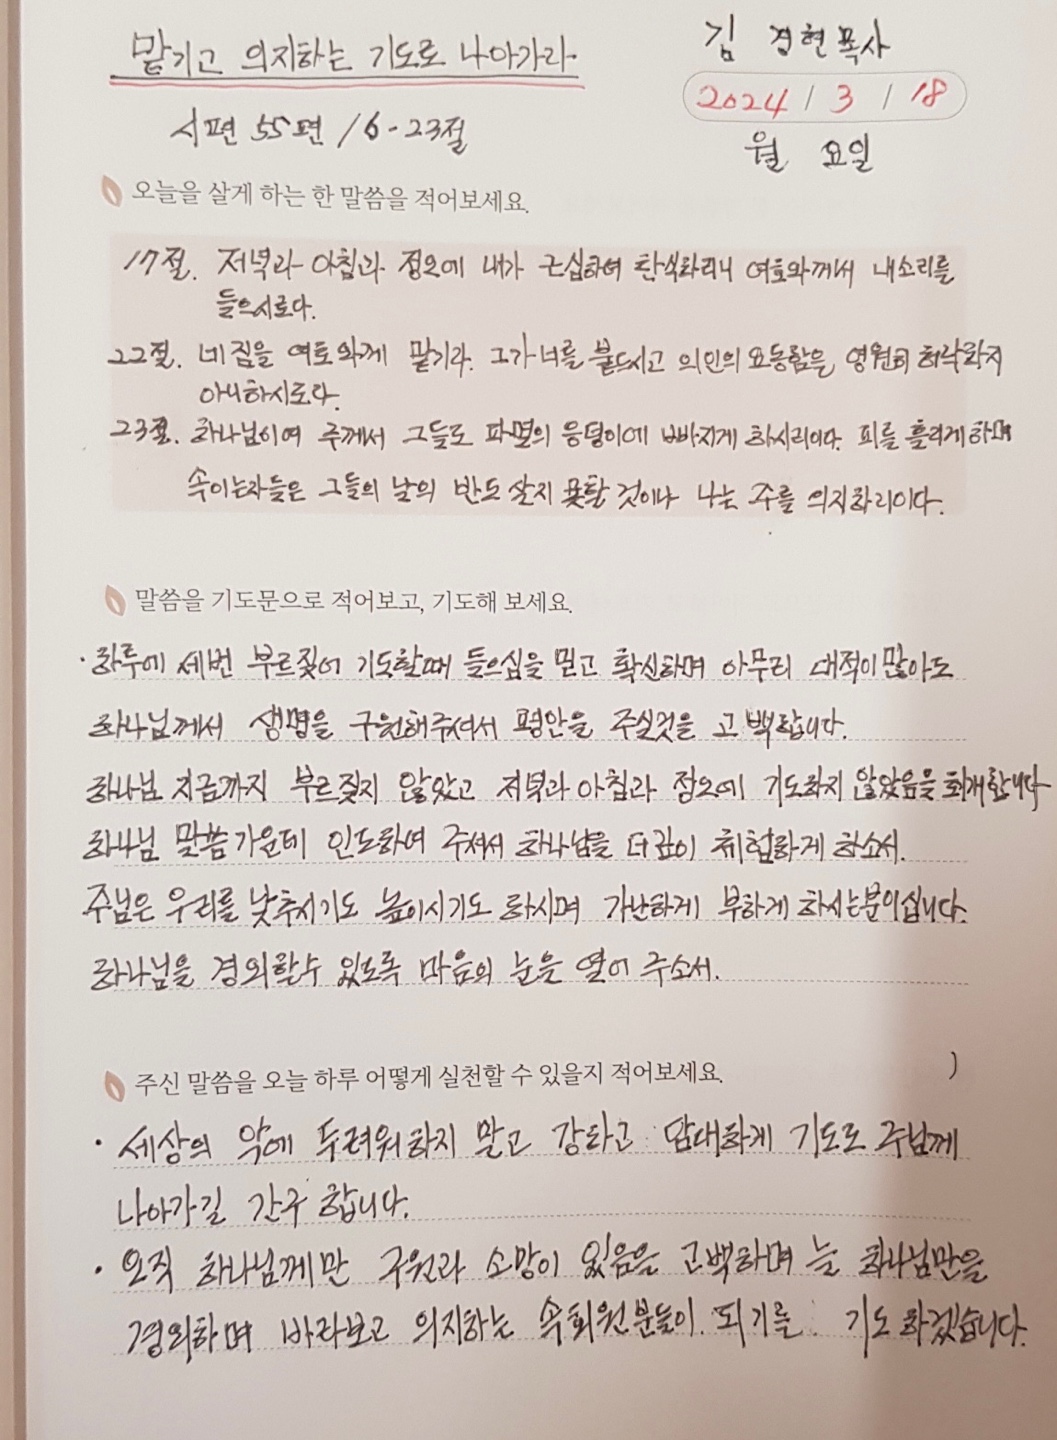 맡기고 의지하는 기도로 나아가라
김 경현 목사
2024 / 3 / 18
시편 55편 16-23절
월 요일
오늘을 살게 하는 한 말씀을 적어보세요.
17절. 저녁과 아침과 정오에 내가 근심하여 탄식하리니 여호와께서 내소리를
들으시로다.
22절. 네짐을 여호와께 맡기라. 그가 너를 붙드시고 의인의 요동함을 영원히 허락하지
아니하시로다.
23절. 하나님이여 주께서 그들로 파멸의 웅덩이에 빠지게 하시리이다. 피를 흘리게하며
속이는자들은 그들의 날의 반도 살지 못할 것이나 나는 주를 의지하리이다.
말씀을 기도문으로 적어보고, 기도해 보세요.
· 하루에 세번 부르짖어 기도할때 들으심을 믿고 확신하며 아무리 대적이 많아도
하나님께서 생명을 구원해주셔서 평안을 주실것을 고백합니다.
하나님 지금까지 부르짖지 않았고 저녁과 아침과 정오에 기도하지 않았음을 회개합니다
하나님 말씀가운데 인도하여 주셔서 하나님을 더깊이 체험하게 하소서.
주님은 우리를 낮추시기도 높이시기도 하시며 가난하게 부하게 하시는분이십니다.
하나님을 경외할수 있도록 마음의 눈을 열어 주소서.
주신 말씀을 오늘 하루 어떻게 실천할 수 있을지 적어보세요.
· 세상의 악에 두려워하지 말고 강하고 담대하게 기도로 주님께
나아가길 간구 합니다.
· 오직 하나님께만 구원과 소망이 있음을 고백하며 늘 하나님만을
경외하며 바라보고 의지하는 속회원분들이 되기를 기도하겠습니다.